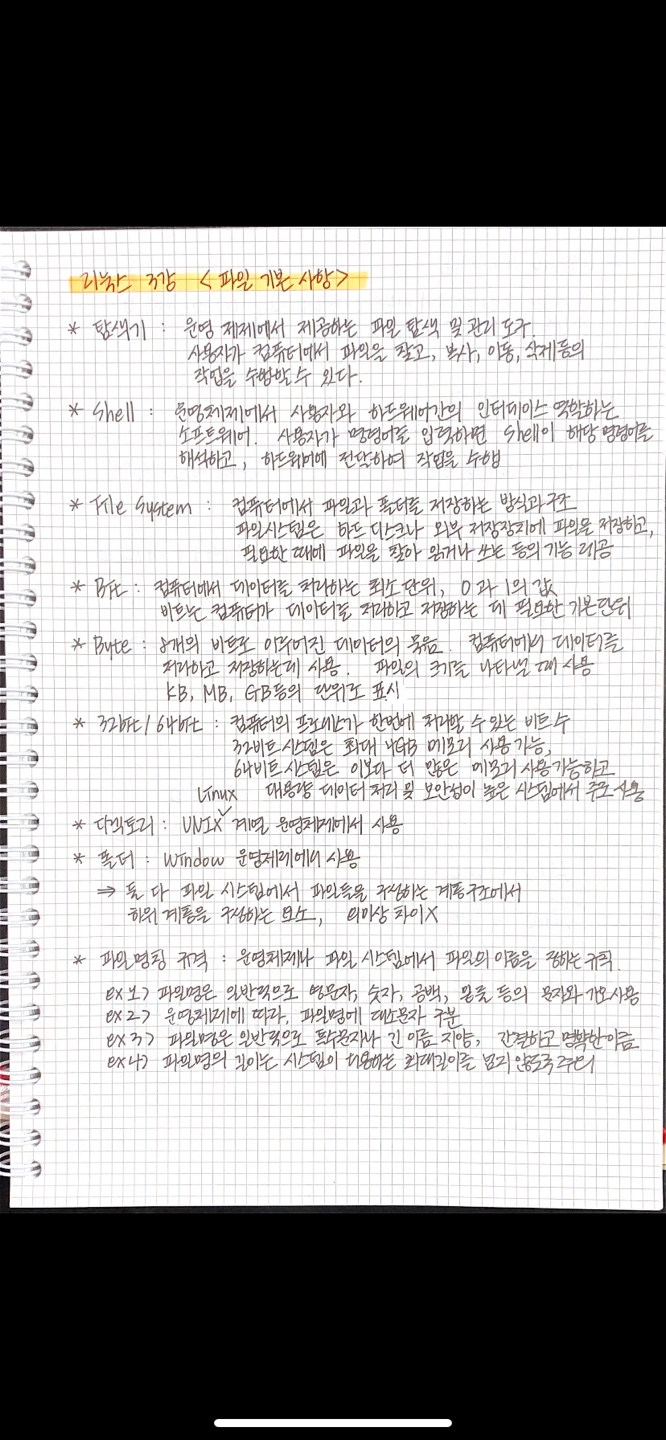 리눅스 3강 <파일 기본 사항>
* 탐색기 : 운영 체제에서 제공하는 파일 탐색 및 관리 도구.
사용자가 컴퓨터에서 파일을 찾고, 복사, 이동, 삭제 등의
작업을 수행할 수 있다.
* Shell : 운영체제에서 사용자와 하드웨어간의 인터페이스 역할하는
소프트웨어. 사용자가 명령어를 입력하면 Shell이 해당 명령어를
해석하고, 하드웨어에 전달하여 작업을 수행
* File System : 컴퓨터에서 파일과 폴더를 저장하는 방식과 구조
파일시스템은 하드 디스크나 외부 저장장치에 파일을 저장하고,
필요한 때에 파일을 찾아 읽거나 쓰는 등의 기능 제공
* Bit : 컴퓨터에서 데이터를 처리하는 최소 단위, 0과 1의 값
비트는 컴퓨터가 데이터를 처리하고 저장하는 데 필요한 기본단위
* Byte : 8개의 비트로 이루어진 데이터의 묶음. 컴퓨터에서 데이터를
처리하고 저장하는데 사용. 파일의 크기를 나타낼 때 사용
KB, MB, GB등의 단위로 표시
* 32bit / 64bit : 컴퓨터의 프로세스가 한번에 처리할 수 있는 비트 수
32비트 시스템은 최대 4GB 메모리 사용 가능,
64비트 시스템은 이보다 더 많은 메모리 사용가능하고
대용량 데이터 처리 및 보안성이 높은 시스템에서 주로 사용
Linux
* 디렉토리 : UNIX 계열 운영체제에서 사용
* 폴더 : Window 운영체제에서 사용
⇒ 둘 다 파일 시스템에서 파일들을 구성하는 계층구조에서
하위 계층을 구성하는 요소, 의미상 차이 X
* 파일명칭 규격 : 운영체제나 파일 시스템에서 파일의 이름을 정하는 규칙.
ex 1) 파일명은 일반적으로 영문자, 숫자, 공백, 밑줄 등의 문자와 기호사용
ex 2) 운영체제에 따라, 파일명에 대소문자 구분
ex 3) 파일명은 일반적으로 특수문자나 긴 이름 지양, 간결하고 명확한 이름
ex 4) 파일명의 길이는 시스템이 허용하는 최대길이를 넘지 않도록 주의